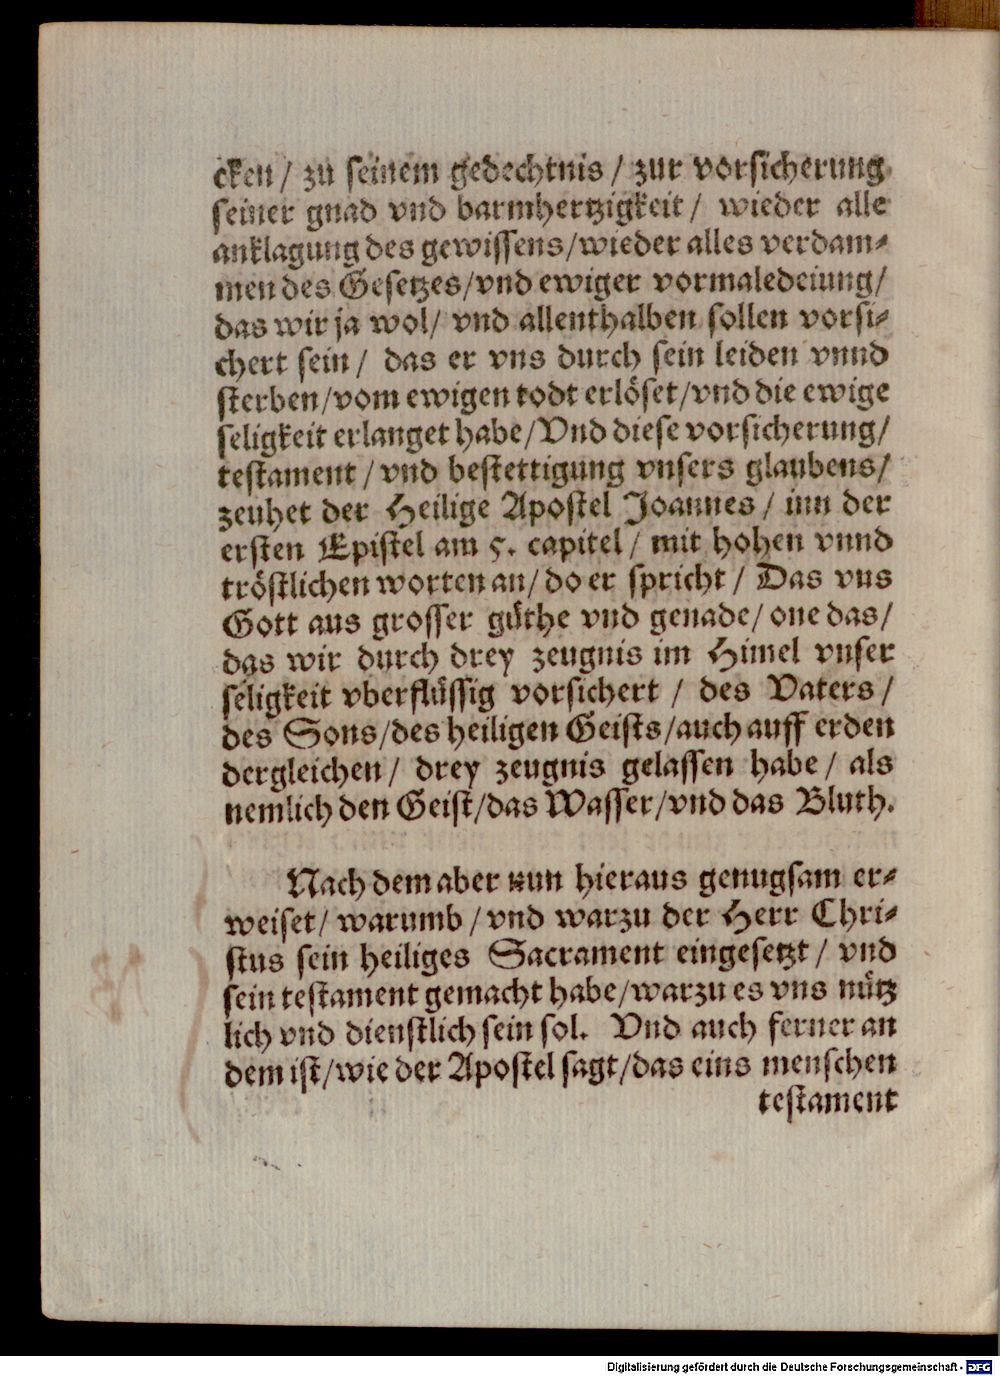 cken / zu seinem gedechtnis / zur vorsicherung
seiner gnad vnd barmhertzigkeit / wieder alle
anklagung des gewissens / wieder alles verdam-
men des Gesetzes / vnd ewiger vormaledeiung /
das wir ja wol / vnd allenthalben sollen vorsi-
chert sein / das er vns durch sein leiden vnnd
sterben / vom ewigen todt erlöset / vnd die ewige
seligkeit erlanget habe / Vnd diese vorsicherung /
testament / vnd bestettigung vnsers glaubens /
zeuhet der Heilige Apostel Joannes / inn der
ersten Epistel am 5. capitel / mit hohen vnnd
tröstlichen worten an / do er spricht / Das vns
Gott aus grosser güthe vnd genade / one das /
das wir durch drey zeugnis im Himel vnser
seligkeit vberflüssig vorsichert / des Vaters /
des Sons / des heiligen Geists / auch auff erden
dergleichen / drey zeugnis gelassen habe / als
nemlich den Geist / das Wasser / vnd das Bluth.
Nach dem aber nun hieraus genugsam er-
weiset / warumb / vnd warzu der Herr Chri-
stus sein heiliges Sacrament eingesetzt / vnd
sein testament gemacht habe / warzu es vns nütz
lich vnd dienstlich sein sol. Vnd auch ferner an
dem ist / wie der Apostel sagt / das eins menschen
testament
Digitalisierung gefördert durch die Deutsche Forschungsgemeinschaft - DFG